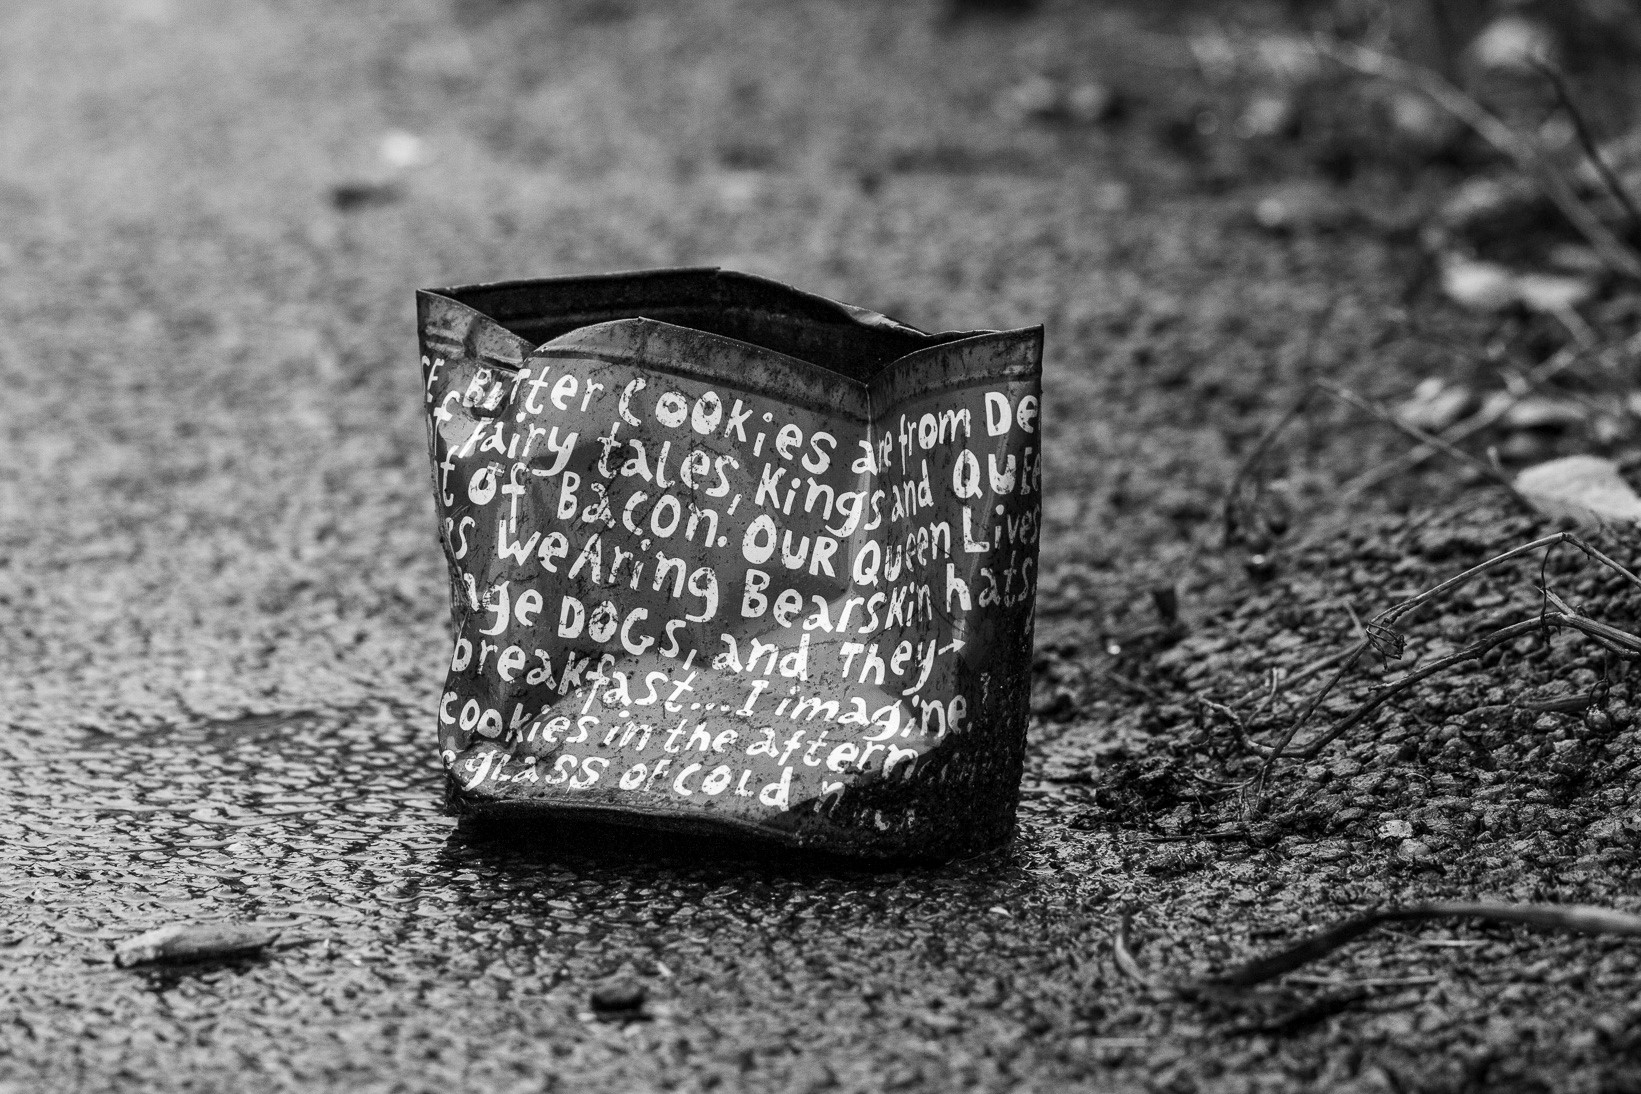 Butter COOKiES are from De
of fairy tales, Kings and QUEE
t Of Bacon. OUR Queen Lives
ss WeAring BearsKin hats.
age DOGS, and They→
breakfast... I imagine
cookies in the aftern
gLASS OF COLD